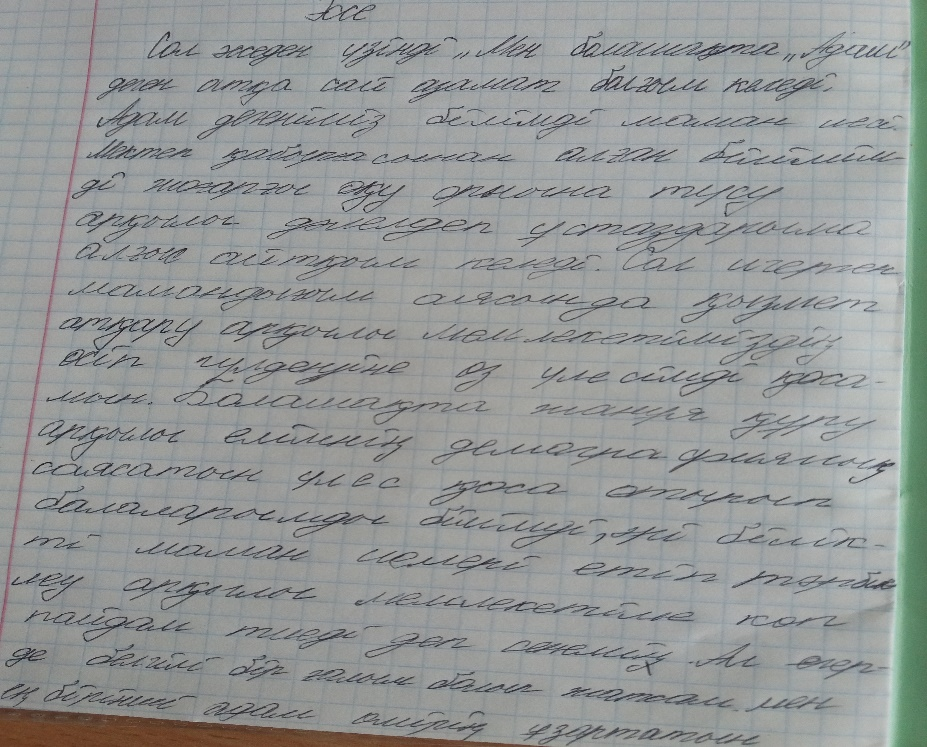 Эссе
Сол эседен үзінді „Мен балашақта „Адам"
деген атқа сай азамат болғым келеді.
Адам дегеніміз білімді маман иесі.
Мектеп қабырғасынан алған білімім-
ді жоғарғы оқу орнына түсу
арқылы дәлелдеп ұстаздарыма
алғыс айтқым келеді. Сол игерген
мамандығым аясында қызмет
атқару арқылы мемлекетіміздің
өсіп гүлденуіне өз үлесімді қоса-
мын. Болашақта жанұя құру
арқылы елімнің демографиялық
саясатын үлес қоса отырып
балаларымды білімді, әрі білік-
ті маман иелері етіп тәрбие
леу арқылы мемлекетіме көп
пайдам тиеді деп сенемін. Ал егер-
де белгілі бір ғалым болып жатсам мен
ең бірінші адам өмірің ұзартатын